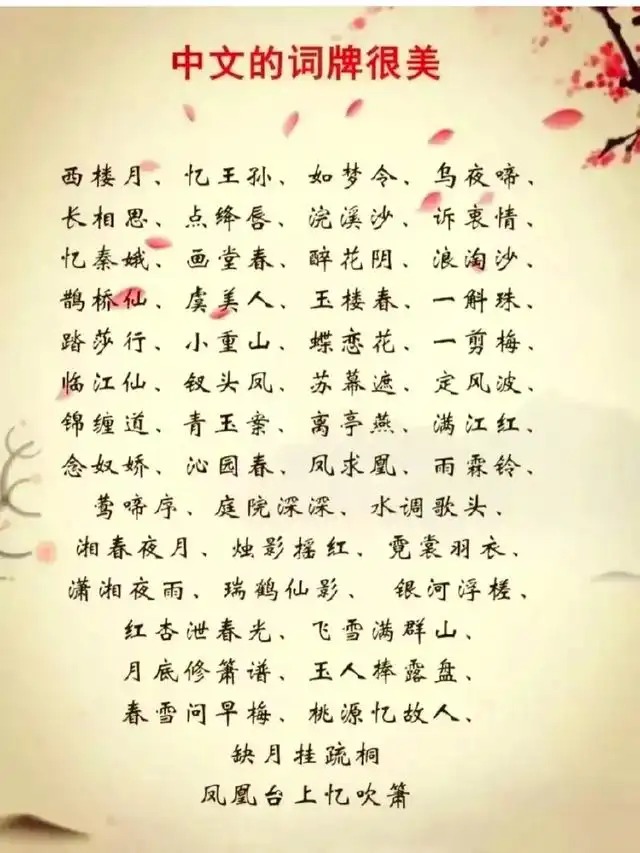 中文的词牌很美
西楼月、忆王孙、如梦令、乌夜啼、
长相思、点绛唇、浣溪沙、诉衷情、
忆秦娥、画堂春、醉花阴、浪淘沙、
鹊桥仙、虞美人、玉楼春、一斛珠、
踏莎行、小重山、蝶恋花、一剪梅、
临江仙、钗头凤、苏幕遮、定风波、
锦缠道、青玉案、离亭燕、满江红、
念奴娇、沁园春、凤求凰、雨霖铃、
莺啼序、庭院深深、水调歌头、
湘春夜月、烛影摇红、霓裳羽衣、
潇湘夜雨、瑞鹤仙影、银河浮槎、
红杏泄春光、飞雪满群山、
月底修箫谱、玉人捧露盘、
春雪问早梅、桃源忆故人、
缺月挂疏桐
凤凰台上忆吹箫